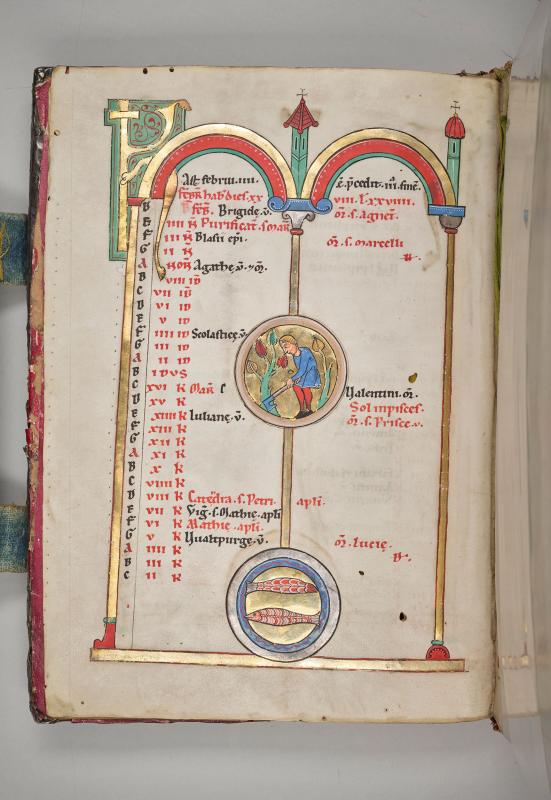 KL
Aꝉ februu.iiii. 
febr̄ hab̄ dies.xx viii. Lxxviiii.
D feb̄. Brigide.v̄. oꝝ. s. Agnet̄.
E iiii N̄ Purificat̄. s. mar̄
F iii N̄ Blasii epi. oꝝ. s. marcelli
G ii N̄
A NON̄ Agathe.v̄.
B viii ID̄
C vii ID̄
D vi ID̄
E v ID̄
F iiii ID̄ Scolastice.v̄
G iii ID̄
A ii ID̄
B IDVS
C xvi K Mar̄.
D xv K Valentini.
Sol in pisces.
E xiiii K Iuliane.v̄. s. Prisce.v.
F xiii K
G xii K
A xi K
B x K
C viiii K
D viii K Catedra.s. Petri. apli.
E vii K Viḡ.s. Mathie.apli
F vi K Mathie.apli.
G v K Vualtpurge.v̄. Lucie.
A iiii K
B iii K
C ii K